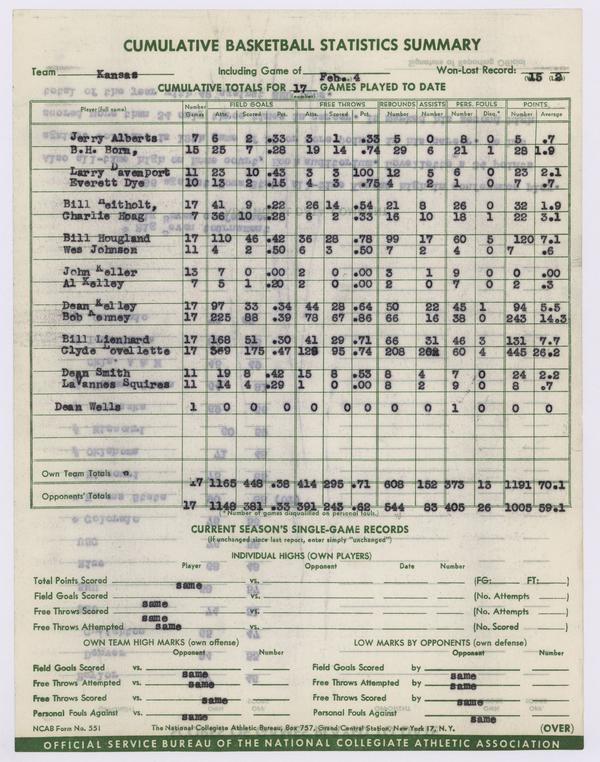 CUMULATIVE BASKETBALL STATISTICS SUMMARY
Team Kansas Including Game of Feb. 4 Won-Lost Record: 15 2
CUMULATIVE TOTALS FOR 17 GAMES PLAYED TO DATE
Number FIELD GOALS FREE THROWS REBOUNDS ASSISTS PERS. FOULS POINTS
Player (full name) Games Atts. Scored Pct. Atts. Scored Pct. Number Number Number Disq.* Number Average
Jerry Alberts 7 6 2 .33 3 1 .33 5 0 8 0 5 .7
B.H. Born, 15 25 7 .28 19 14 .74 29 6 21 1 28 1.9
Larry Davenport 11 23 10 .43 3 3 100 12 5 6 0 23 2.1
Everett Dye 10 13 2 .15 4 3 .75 4 2 1 0 7 .7
Bill Heitholt, 17 41 9 .22 26 14 .54 21 8 26 0 32 1.9
Charlie Hoag 7 36 10 .28 6 2 .33 16 10 18 1 22 3.1
Bill Hougland 17 110 46 .42 36 28 .78 99 17 60 5 120 7.1
Wes Johnson 11 4 2 .50 6 3 .50 7 2 4 0 7 .6
John Keller 13 7 0 .00 2 0 .00 3 1 9 0 0 .00
Al Kelley 7 5 1 .20 2 0 .00 2 0 7 0 2 .3
Dean Kelley 17 97 33 .34 44 28 .64 50 22 45 1 94 5.5
Bob Kenney 17 225 88 .39 78 67 .86 66 16 38 0 243 14.3
Bill Lienhard 17 168 51 .30 41 29 .71 66 31 46 3 131 7.7
Clyde Lovellette 17 369 175 .47 128 95 .74 208 60 4 445 26.2
Dean Smith 11 19 8 .42 15 8 .53 8 4 7 0 24 2.2
LaVannes Squires 11 14 4 .29 1 0 .00 8 2 9 0 8 .7
Dean Wells 1 0 0 0 0 0 0 0 0 1 0 0 0
Own Team Totals 17 1165 448 .38 414 295 .71 608 152 373 15 1191 70.1
Opponents' Totals 17 1148 381 .33 391 243 .62 544 83 405 26 1005 59.1
(*Number of games disqualified on personal fouls.)
CURRENT SEASON'S SINGLE-GAME RECORDS
(If unchanged since last report, enter simply "unchanged")
INDIVIDUAL HIGHS (OWN PLAYERS)
Player Opponent Date Number
Total Points Scored same vs. (FG: FT: )
Field Goals Scored vs. (No. Attempts )
Free Throws Scored same vs. (No. Attempts )
Free Throws Attempted same vs. (No. Scored )
OWN TEAM HIGH MARKS (own offense) LOW MARKS BY OPPONENTS (own defense)
Opponent Number Opponent Number
Field Goals Scored vs. same Field Goals Scored by same
Free Throws Attempted vs. same Free Throws Attempted by same
Free Throws Scored vs. same Free Throws Scored by same
Personal Fouls Against vs. same Personal Fouls Against by same
NCAB Form No. 551 The National Collegiate Athletic Bureau, Box 757, Grand Central Station, New York 17, N. Y. (OVER)
OFFICIAL SERVICE BUREAU OF THE NATIONAL COLLEGIATE ATHLETIC ASSOCIATION